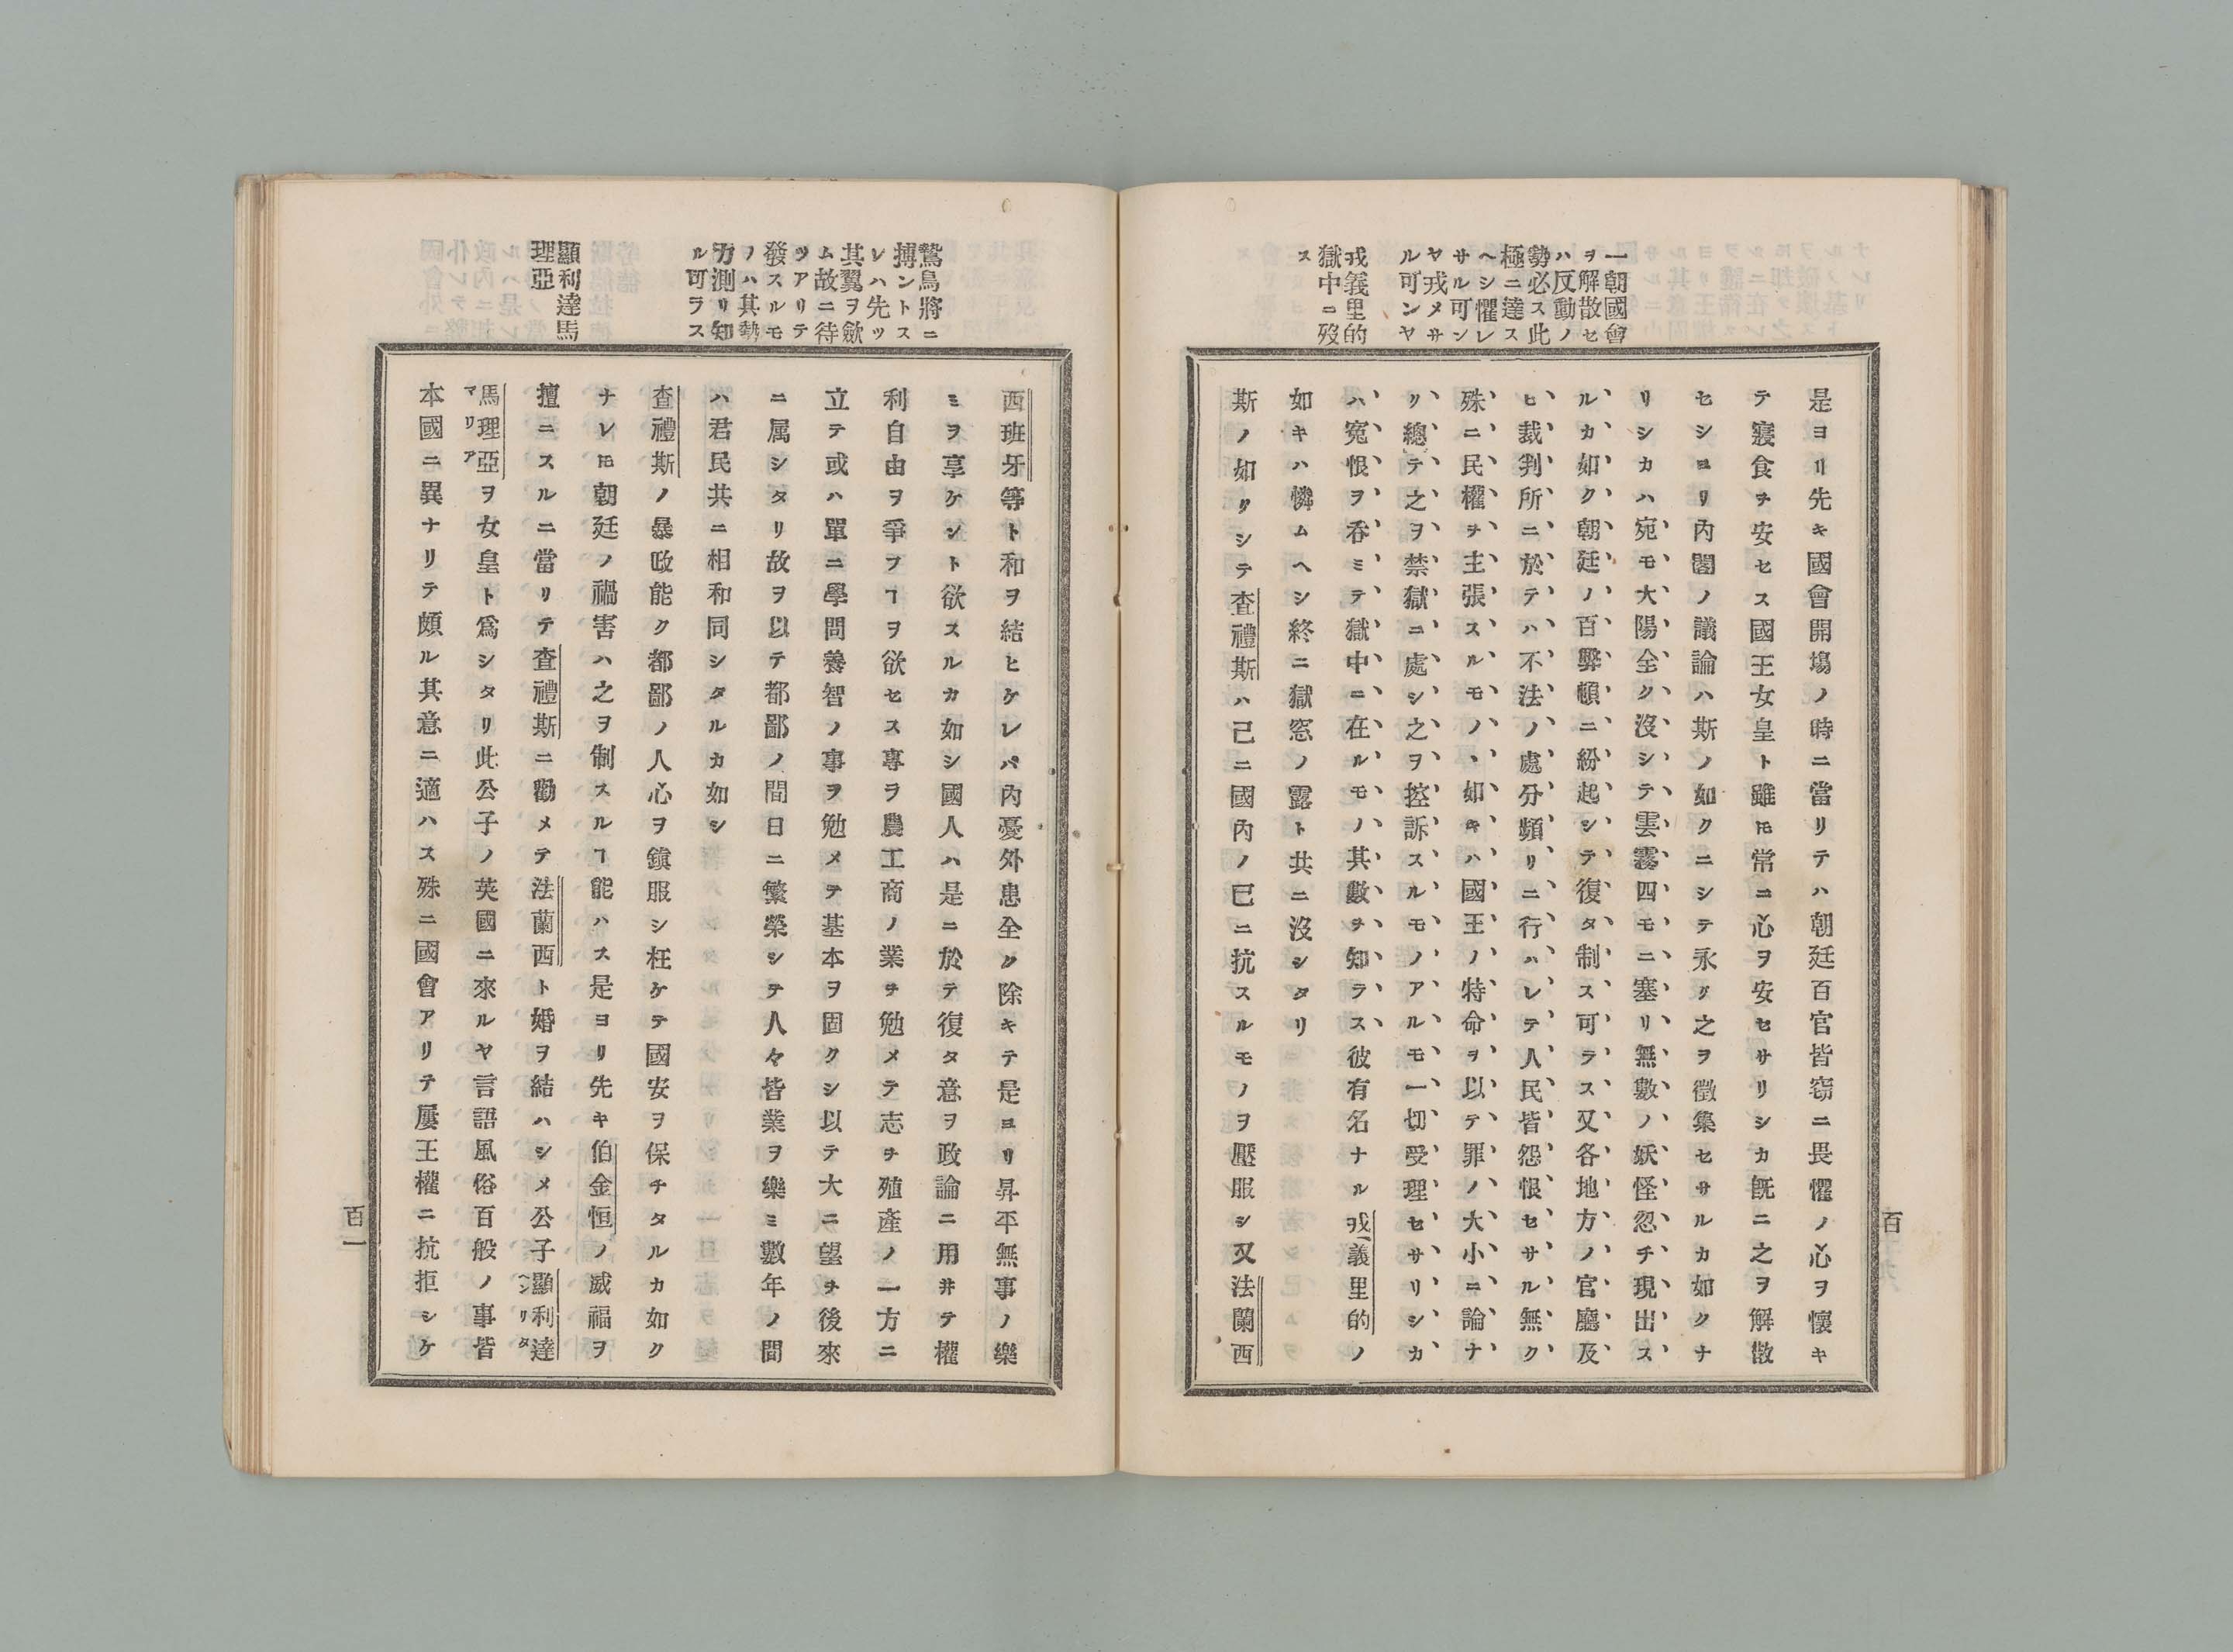 一朝國會
ヲ解散セ
ハ反動ノ
勢必ス此
極ニ達ス
ヘシ懼レ
サル可ン
ヤ戎メサ
ル可ンヤ
戎義里的
獄中ニ歿
ス
是ヨリ先キ國會開塲ノ時ニ當リテハ朝廷百官皆窃ニ畏懼ノ心ヲ懷キ
テ寢食ヲ安セス國王女皇ト雖𪜈常ニ心ヲ安セサリシカ既ニ之ヲ解散
セシヨリ內閣ノ議論ハ斯ノ如クニシテ永ク之ヲ徵集セサルカ如クナ
リシカハ宛モ大陽全ク沒シテ雲霧四モニ塞リ無數ノ妖怪忽チ現出ス
ルカ如ク朝廷ノ百弊頓ニ紛起シテ復タ制ス可ラス又各地方ノ官廳及
ヒ裁判所ニ於テハ不法ノ處分頻リニ行ハレテ人民皆怨恨セサル無ク
殊ニ民權ヲ主張スルモノヽ如キハ國王ノ特命ヲ以テ罪ノ大小ニ論ナ
ク總テ之ヲ禁獄ニ處シ之ヲ控訴スルモノアルモ一切受理セサリシカ
ハ寃恨ヲ呑ミテ獄中ニ在ルモノ其數ヲ知ラス彼有名ナル戎義里的ノ
如キハ憐ムヘシ終ニ獄窓ノ露ト共ニ沒シタリ
斯ノ如クシテ査禮斯ハ已ニ國內ノ已ニ抗スルモノヲ壓服シ又法蘭西
百
鷲鳥將ニ
搏ントス
レハ先ツ
其翼ヲ歛
ム故ニ待
ツアリテ
發スルモ
ノハ其勢
力測リ知
ル可ラス
顯利達馬
理亞
西班牙等ト和ヲ結ヒケレバ內憂外患全ク除キテ是ヨリ昇平無事ノ樂
ミヲ享ケント欲スルカ如シ國人ハ是ニ於テ復タ意ヲ政論ニ用井テ權
利自由ヲ爭フヿヲ欲セス專ラ農工商ノ業ヲ勉メテ志ヲ殖產ノ一方ニ
立テ或ハ單ニ學問養智ノ事ヲ勉メテ基本ヲ固クシ以テ大ニ望ヲ後來
ニ属シタリ故ヲ以テ都鄙ノ間日ニ繁榮シテ人々皆業ヲ樂ミ數年ノ間
ハ君民共ニ相和同シタルカ如シ
査禮斯ノ暴政能ク都鄙ノ人心ヲ鎭服シ枉ケテ國安ヲ保チタルカ如ク
ナレ𪜈朝廷ノ禍害ハ之ヲ制スルヿ能ハス是ヨリ先キ伯金恒ノ威福ヲ
擅ニスルニ當リテ査禮斯ニ勸メテ法蘭西ト婚ヲ結ハシメ公子顯利達
ヘンリタ
馬理亞ヲ女皇ト爲シタリ此公子ノ英國ニ來ルヤ言語風俗百般ノ事皆
マリア
本國ニ異ナリテ頗ル其意ニ適ハス殊ニ國會アリテ屢王權ニ抗拒シケ
百一